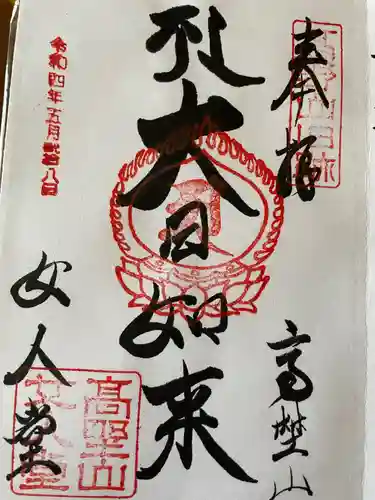 奉拝
高野山
大日如来
女人堂
令和四年五月弐拾八日
高野山
女人堂